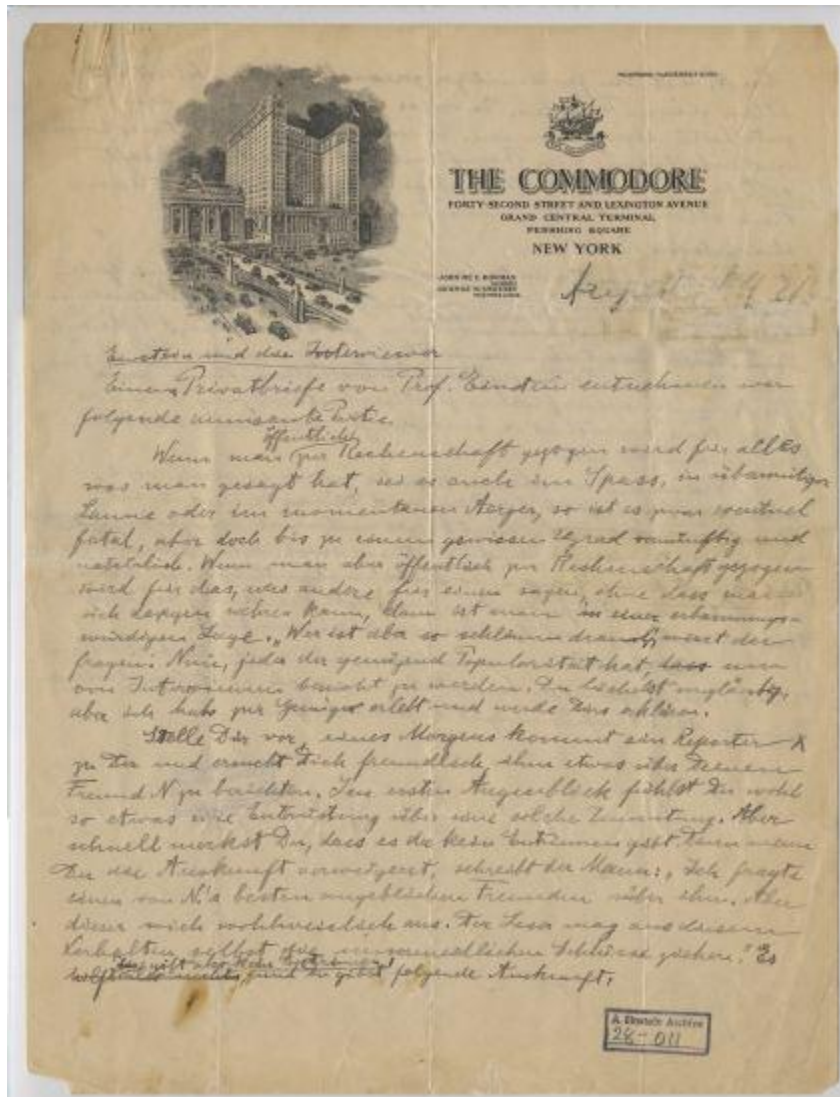 THE COMMODORE
FORTY-SECOND STREET AND LEXINGTON AVENUE
GRAND CENTRAL TERMINAL
PERSHING SQUARE
NEW YORK
Einstein und die Interviewer
Einem Privatbriefe von Prof. Einstein entnehmen wir
folgende amüsante Partie.
öffentlich
Wenn man zur Rechenschaft gezogen wird für alles
was man gesagt hat, sei es auch im Spass, in übermütiger
Laune oder im momentanen Aerger, so ist es zwar eventuel
fatal, aber doch bis zu einem gewissen Grad vernünftig und
natürlich. Wenn man aber öffentlich zur Rechenschaft gezogen
wird für das, was andere für einen sagen, ohne dass man
sich dagegen wehren kann, dann ist man in einer erbarmungs-
würdigen Lage. „Wer ist aber so schlimm dran“, wirst du
fragen. Nun, jeder der genügend Popularität hat um
von Interviewern besucht zu werden. Du lächelst ungläubig,
aber ich habe zur Genüge erlebt und werde Dirs erklären.
Stelle Dir vor, eines Morgens kommt ein Reporter
zu Dir und ersucht Dich freundlich, ihm etwas über Deinen
Freund N zu berichten. Im ersten Augenblick fühlst Du wohl
so etwas wie Entrüstung über eine solche Zumutung. Aber
schnell merkst Du, dass es da kein Entrinnen gibt. Denn wenn
Du die Auskunft verweigerst, schreibt der Mann: „Ich fragte
einen von N's besten angeblichen Freunden über ihn. Aber
dieser wich wohlweislich aus. Der Leser mag aus diesem
Verhalten selbst die unvermeidlichen Schlüsse ziehen.“ Es
gibt also kein Entrinnen,
und Du gibst folgende Auskunft:
A. Einstein Archive
28-011